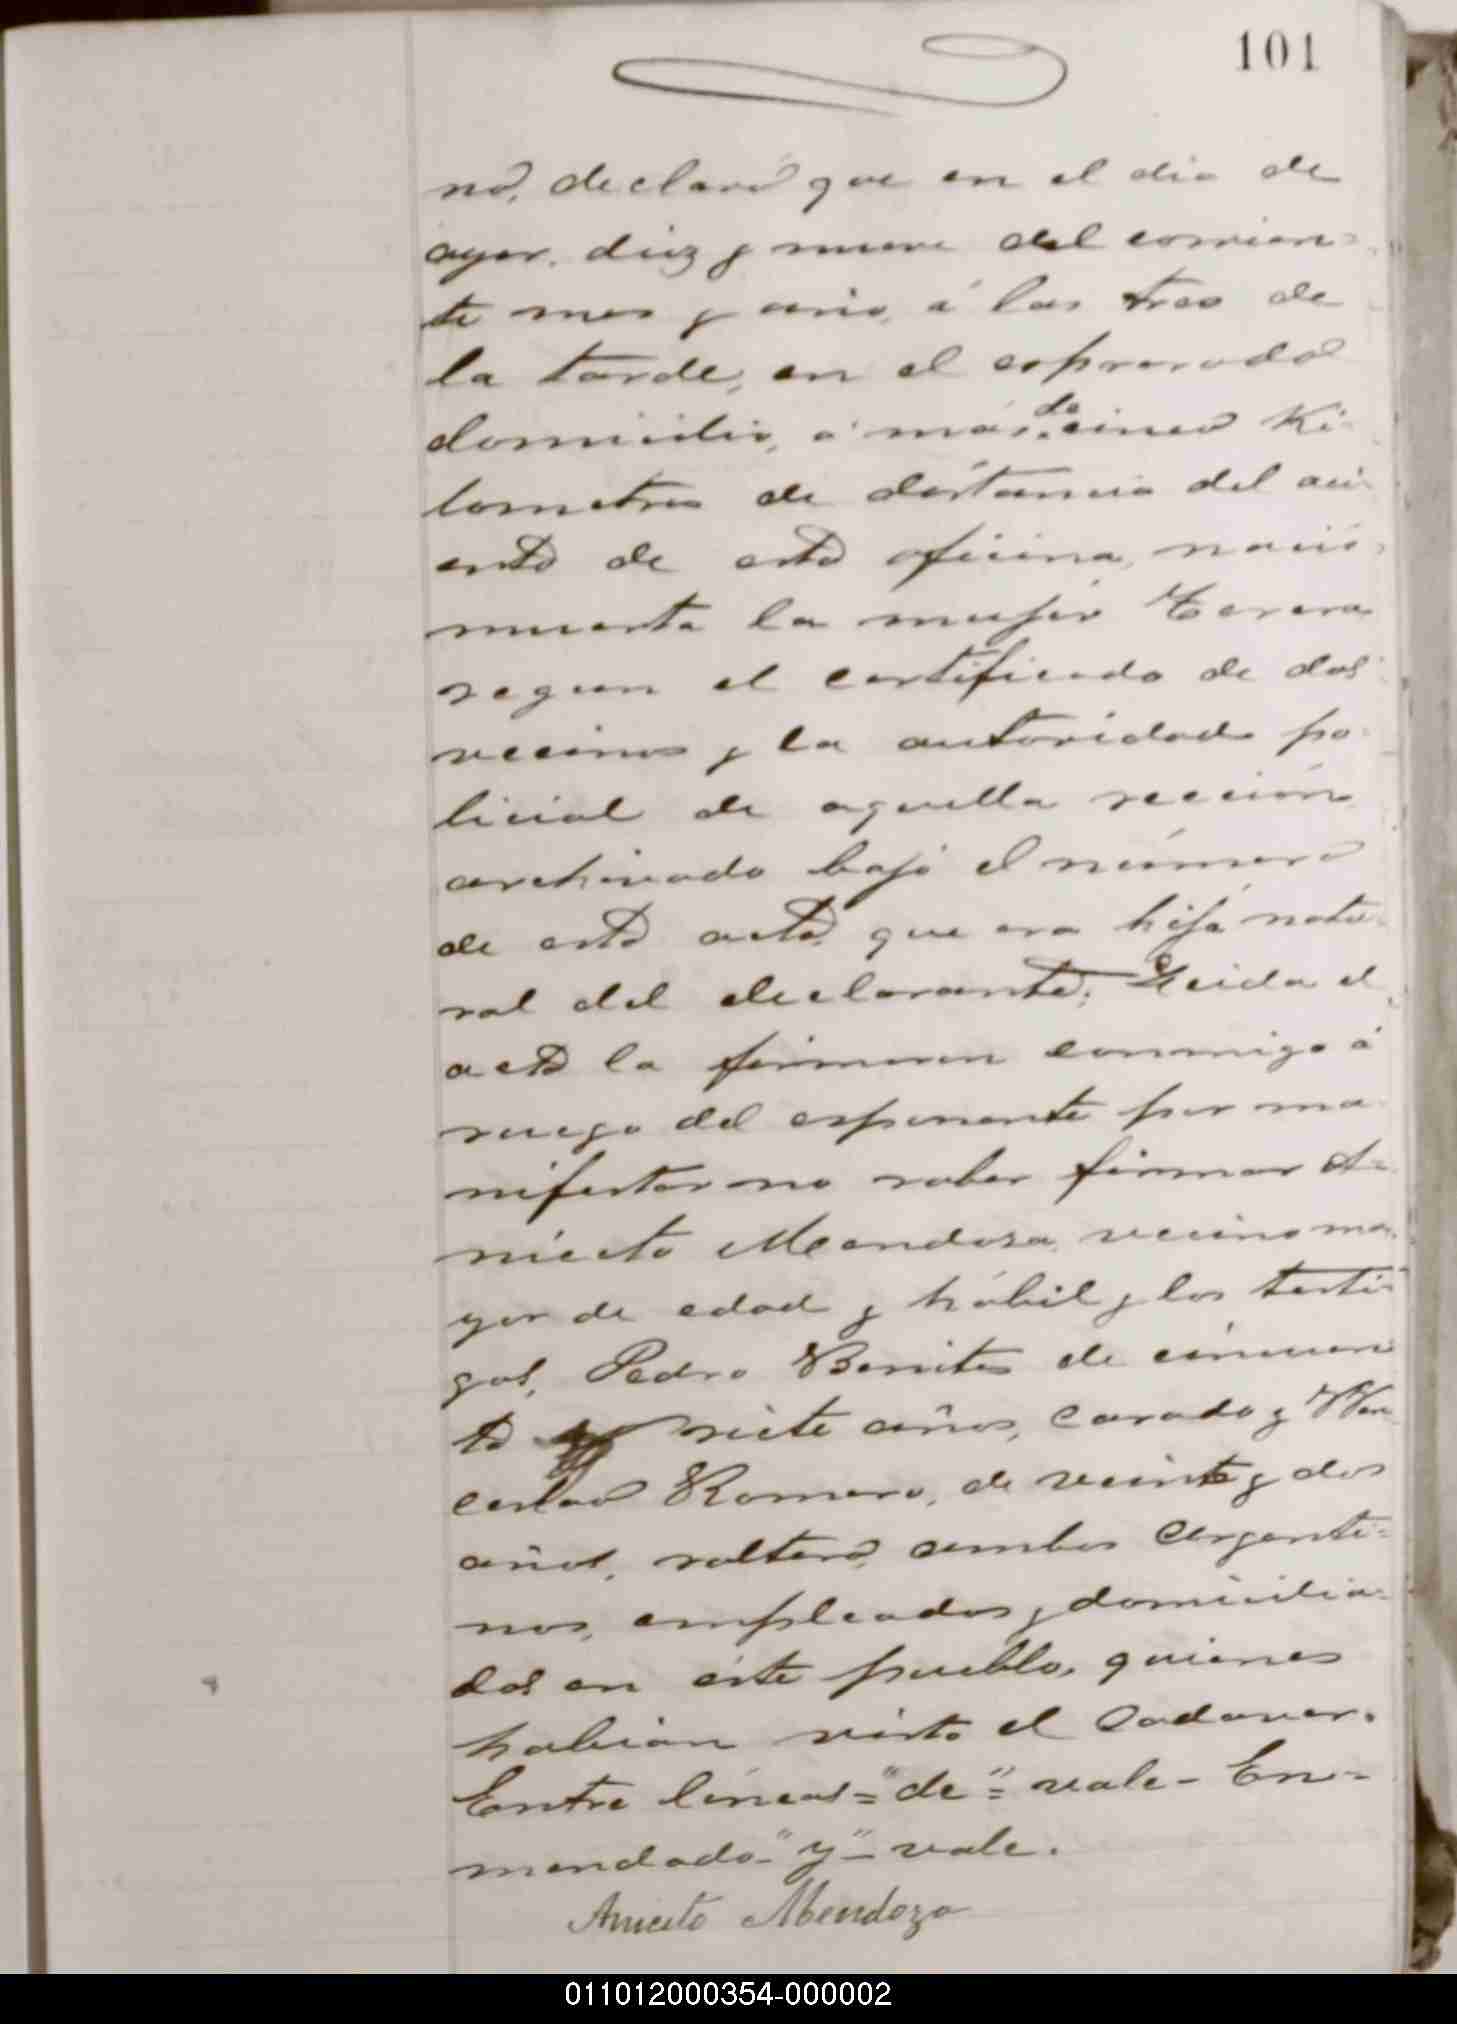 101
no, declaró que en el dia de
ayer, diez y nueve del corrien=
te mes y año, á las tres de
la tarde, en el espresado
domicilio, á más de cinco Ki-
lometros de distancia del aci-
ento de esta oficina, nació
muerta la mujer
segun el certificado de dos
vecinos y la autoridad po-
licial de aquella sección
archivado bajo el número
de esta acta, que era hija natu-
ral del declarante; Leida el
acta la firmaron conmigo á
ruego del esponente por ma-
nifestar no saber firmar A-
niceto Mendosa, vecino ma-
yor de edad y hábil y los testi-
gos, Pedro Benites de cincuen
ta y siete años, casado y Wen
ceslao Romero, de veinte y dos
años, soltero, ambos Argenti=
nos, empleados y domicilia=
dos en éste pueblo, quienes
habian visto el cadaver.
Entre líneas="de"= vale- En=
mendado-"y"- vale.
Aniceto Mendoza
011012000354-000002